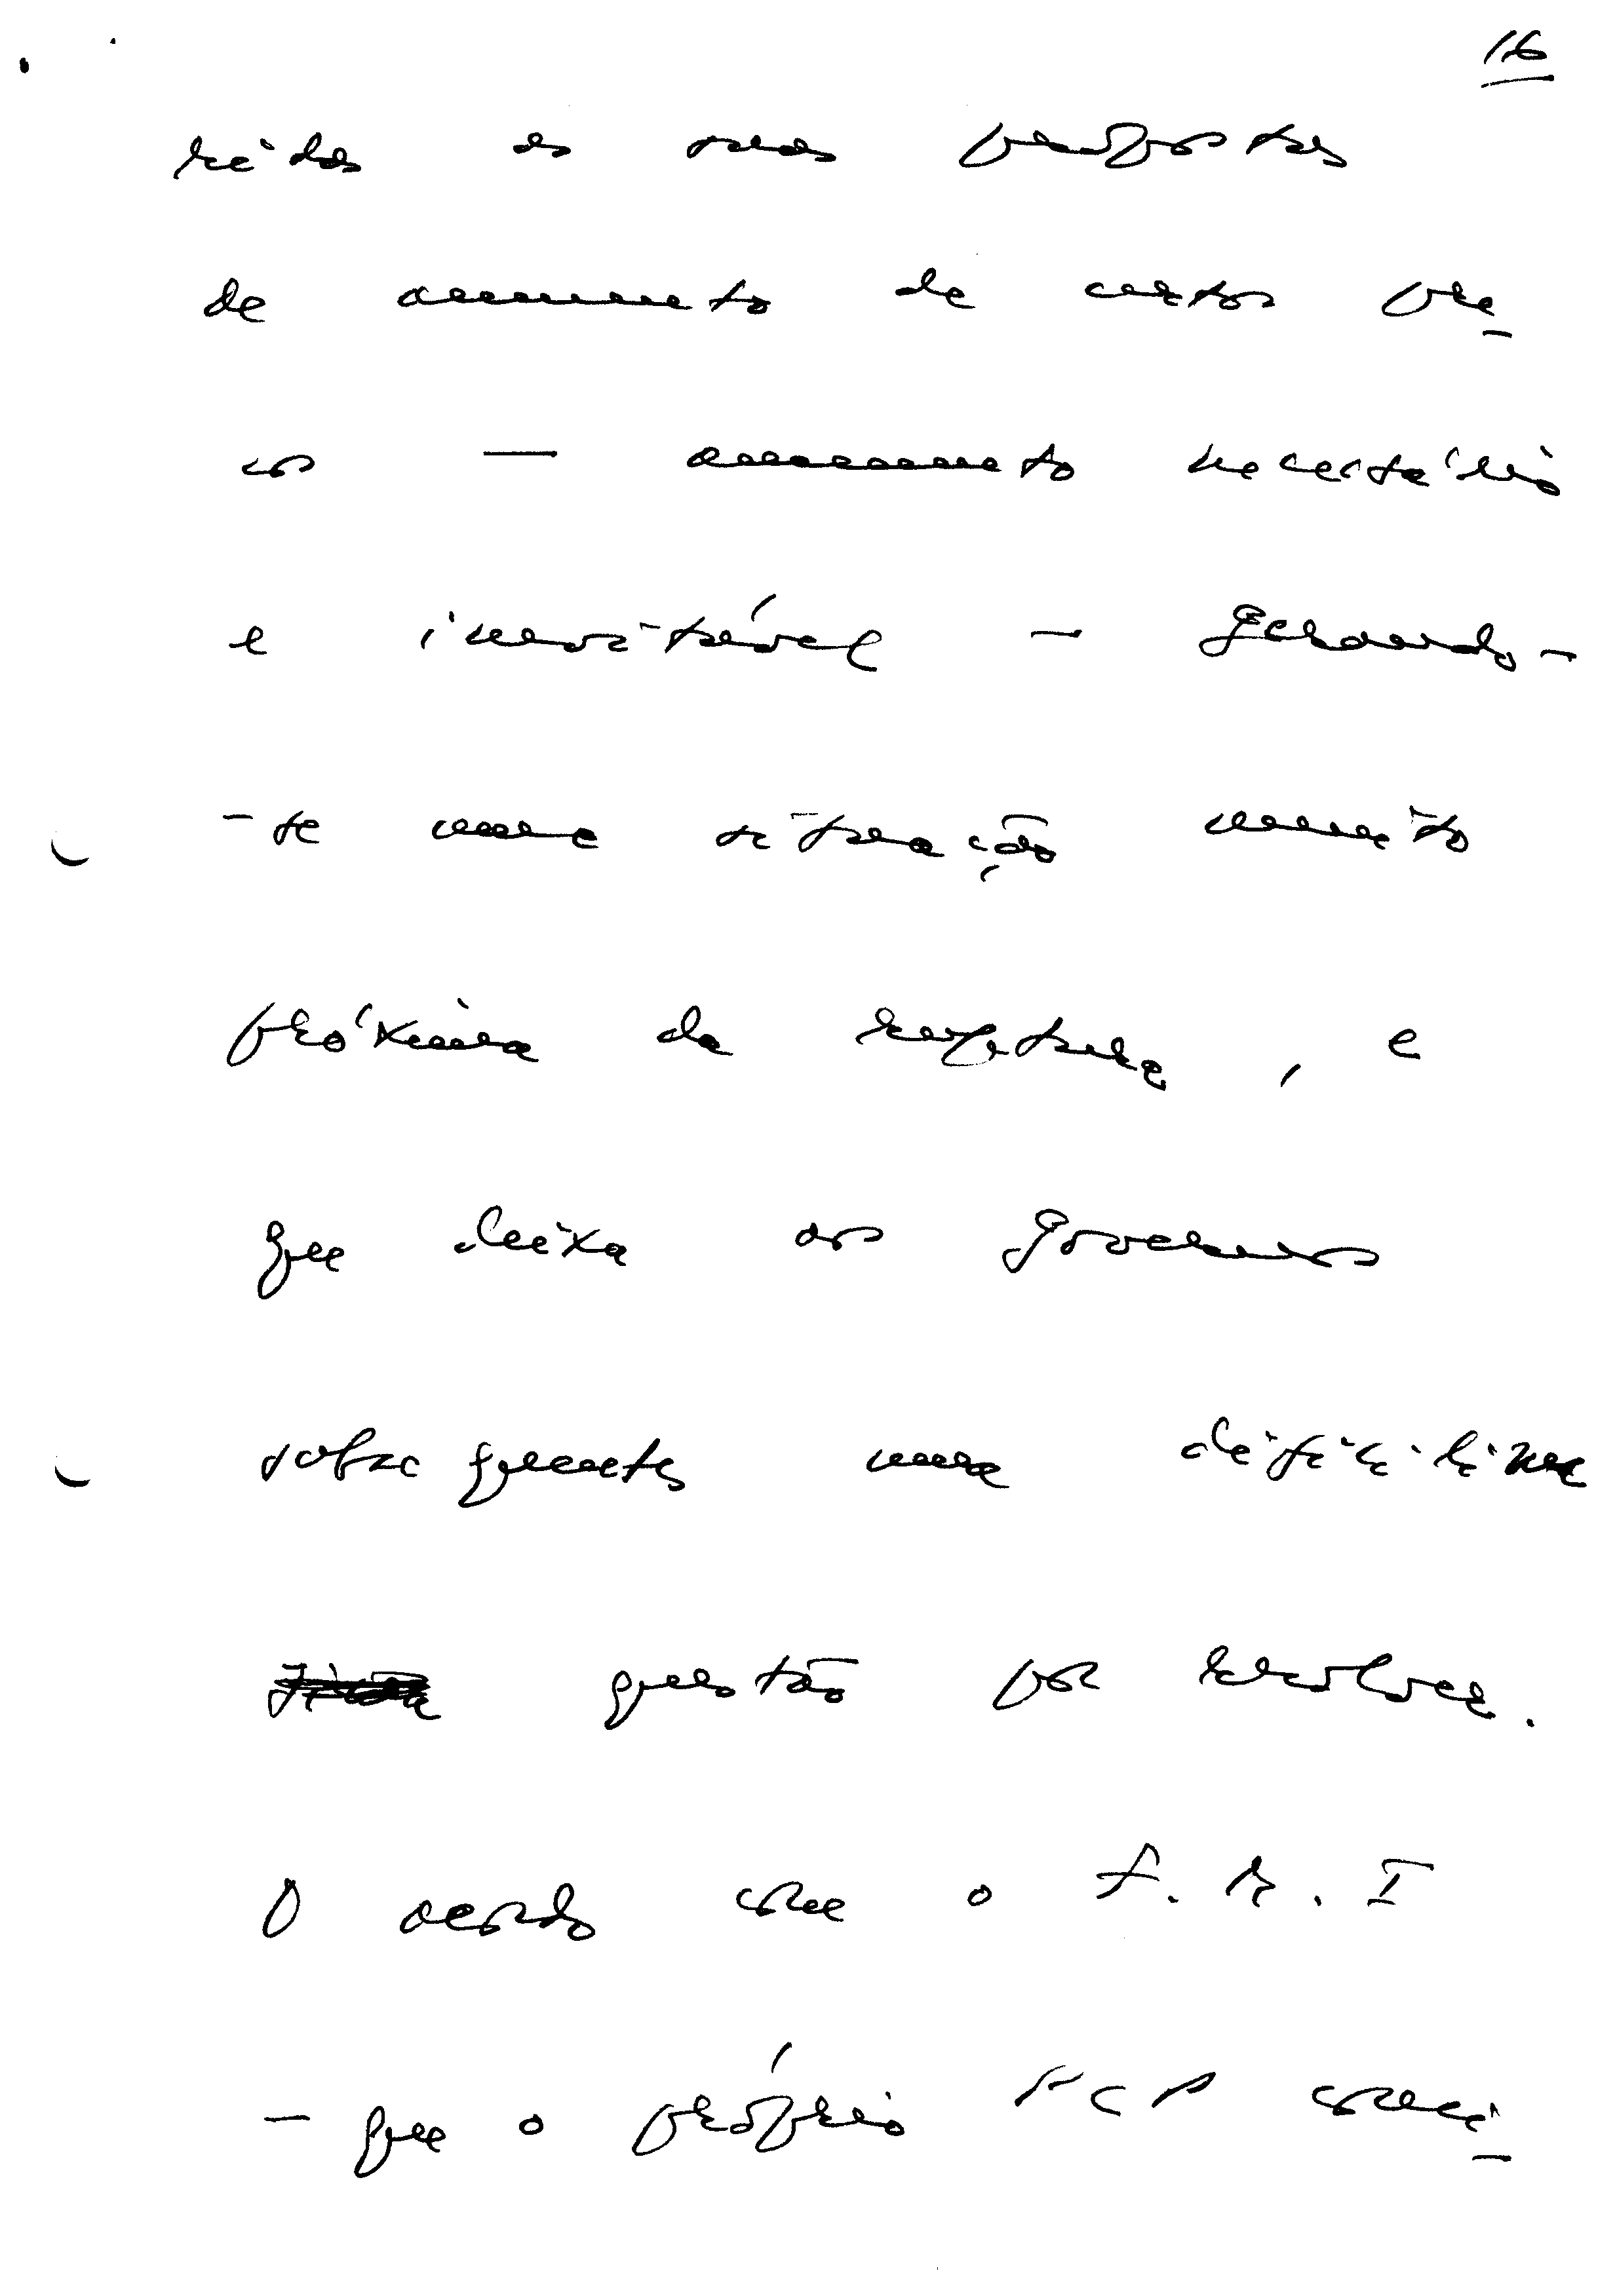 16
reitos as suas propostas
de aumento de certos pre-
ços — aumento necessário
e inevitável — gerando-
-se uma situação muito
próxima da ruptura, e
que deixa aos governos
subsequentes uma dificílima
questão por resolver.
O acordo com o F.M.I
- que o próprio PCP consi-